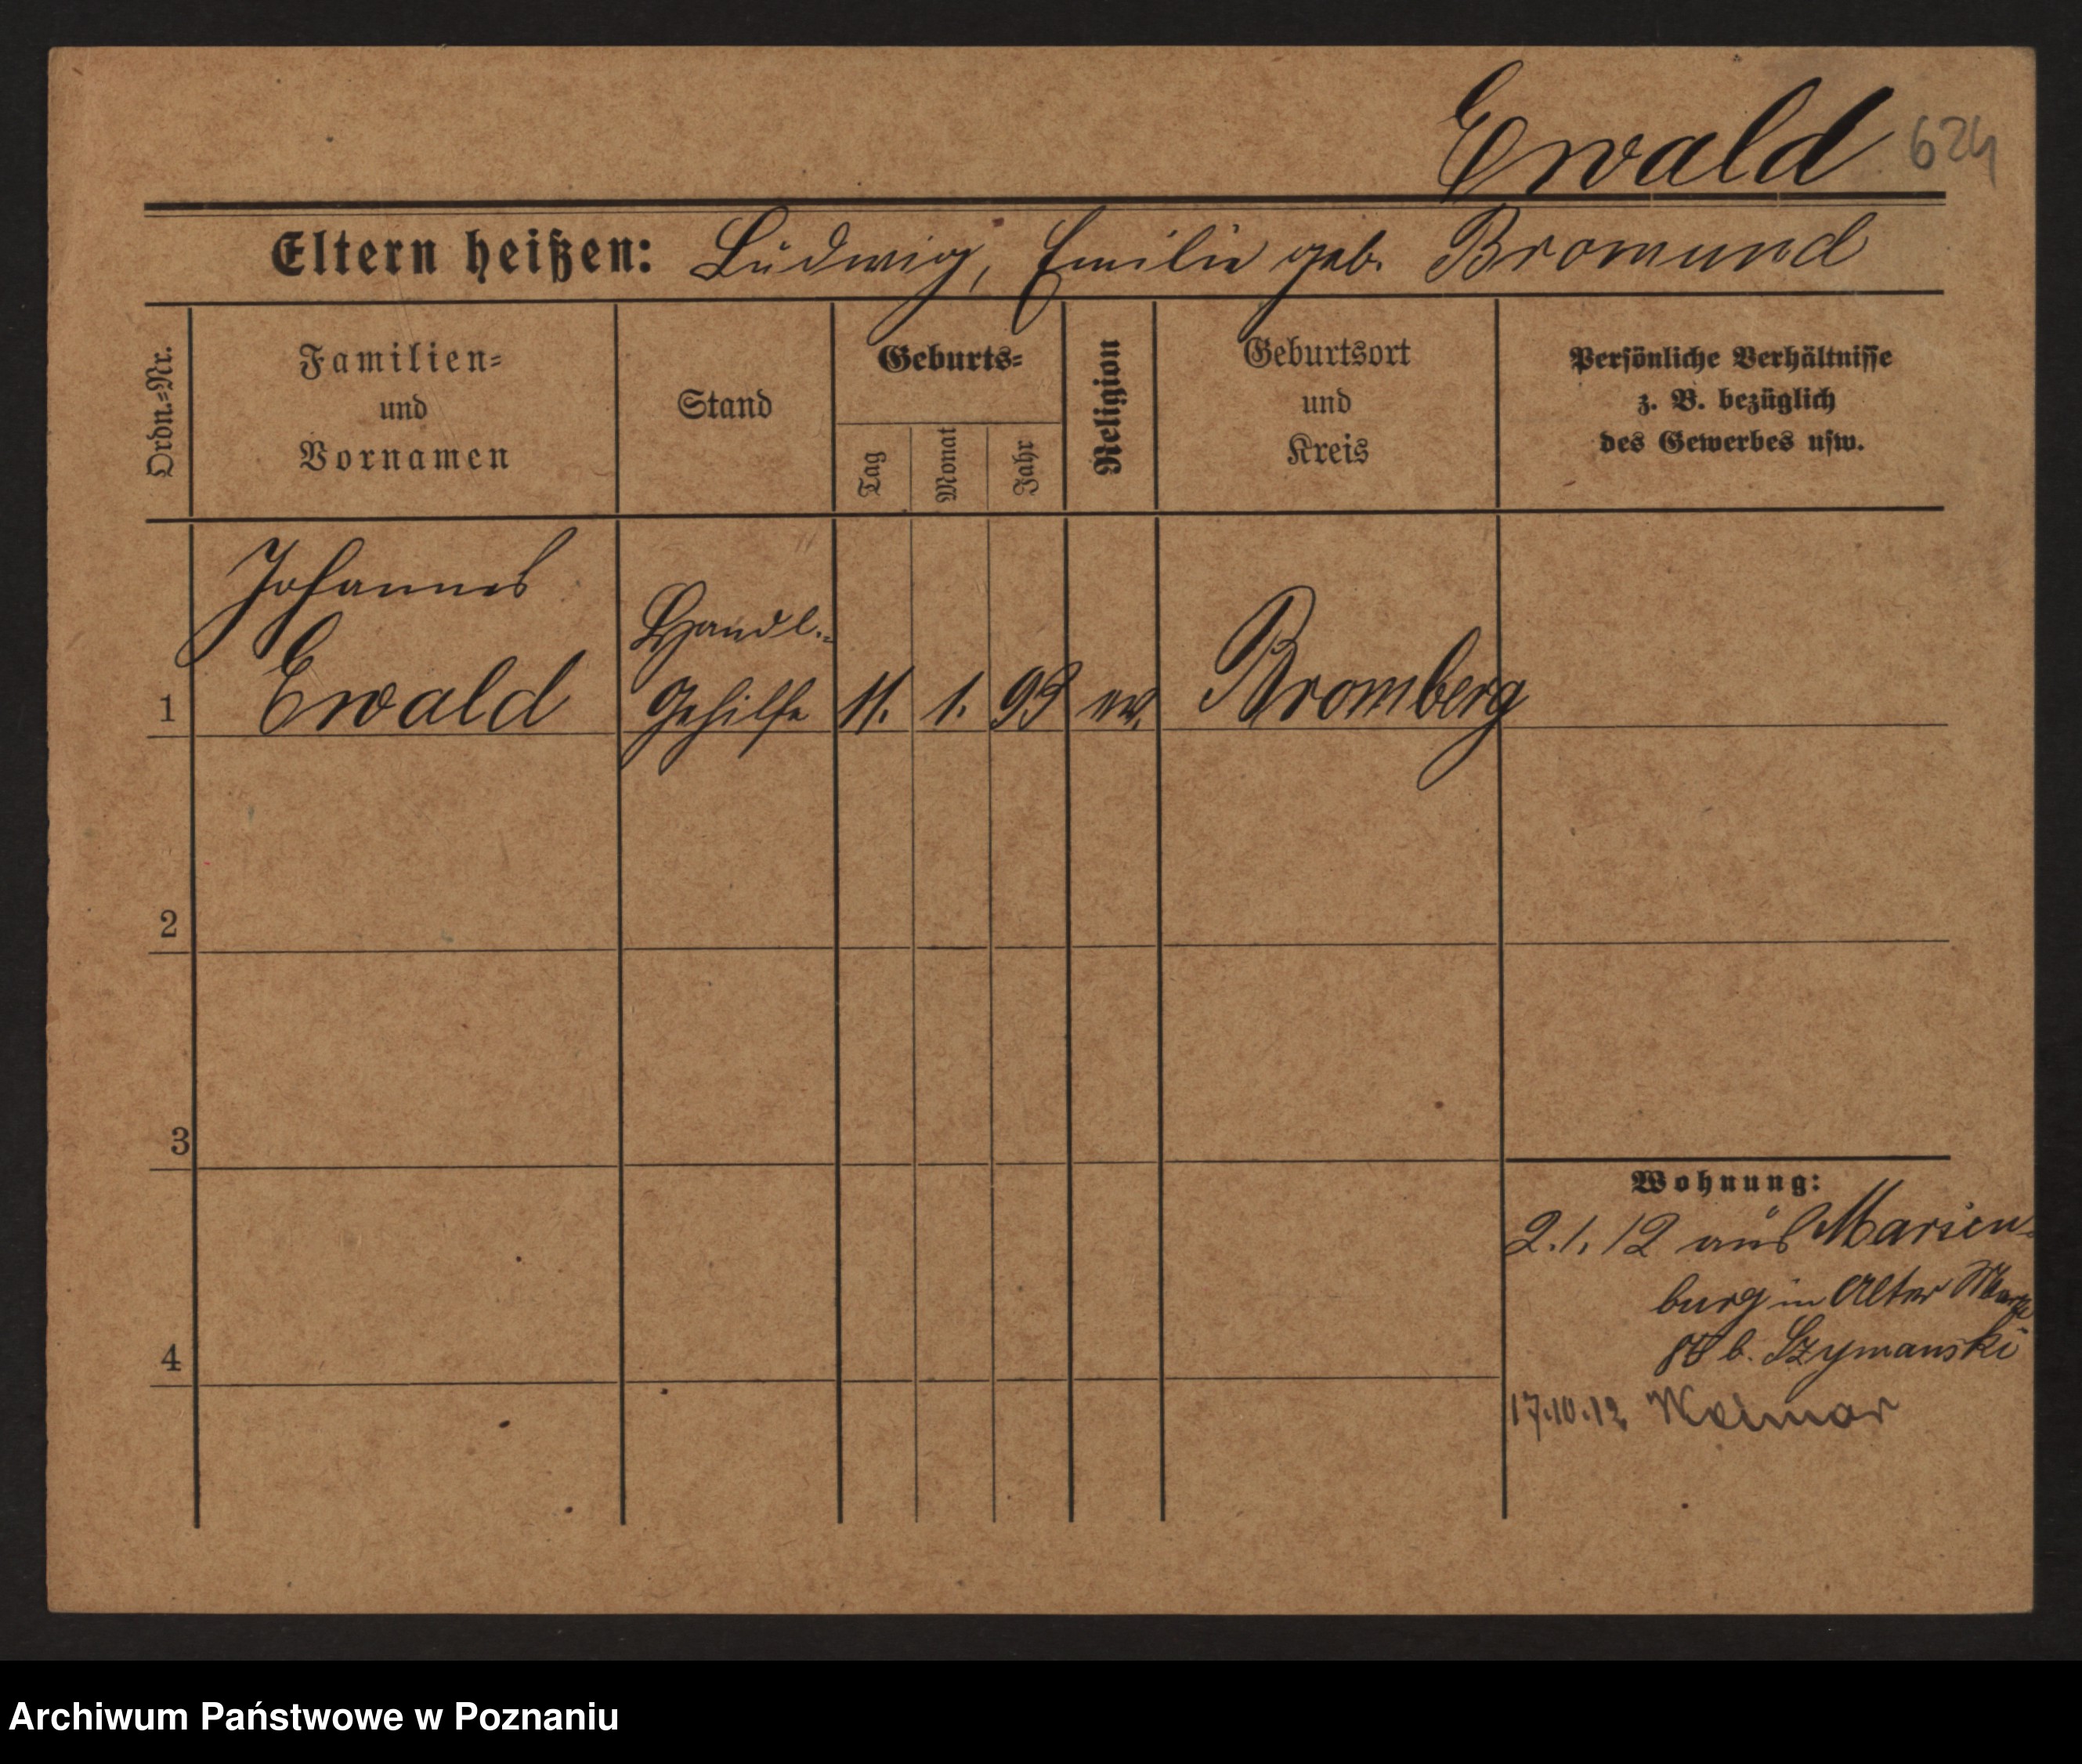 Ewald 624
Eltern heißen: Ludwig, Emilie geb. Bromund
Ordn.=Nr.
Familien=
und
Vornamen
Stand
Geburts=
Tag
Monat
Jahr
Religion
Geburtsort
und
Kreis
Persönliche Verhältnisse
z. B. bezüglich
des Gewerbes usw.
Johannes
Ewald
Handl.=
Gehilfe
1
11. 1. 93 ev. Bromberg
2
3
4
Wohnung:
2.1.12 aus Marien=
burg in Alter Markt
b. Szymanski
17.10.12 Weimar
Archiwum Państwowe w Poznaniu